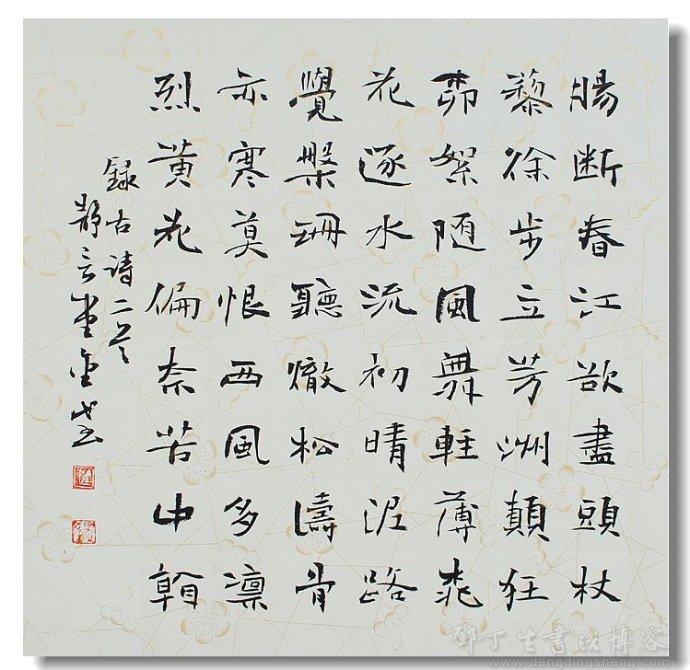 腸斷春江欲盡頭杖
藜徐步立芳洲顛狂
柳絮隨風舞輕薄桃
花逐水流初晴泥路
覺槃珊聽徹松濤骨
亦寒莫恨西風多凜
烈黃花偏奈苦中
錄古詩二首
靜
邓丁生書法博客
www.dengdingsheng.com